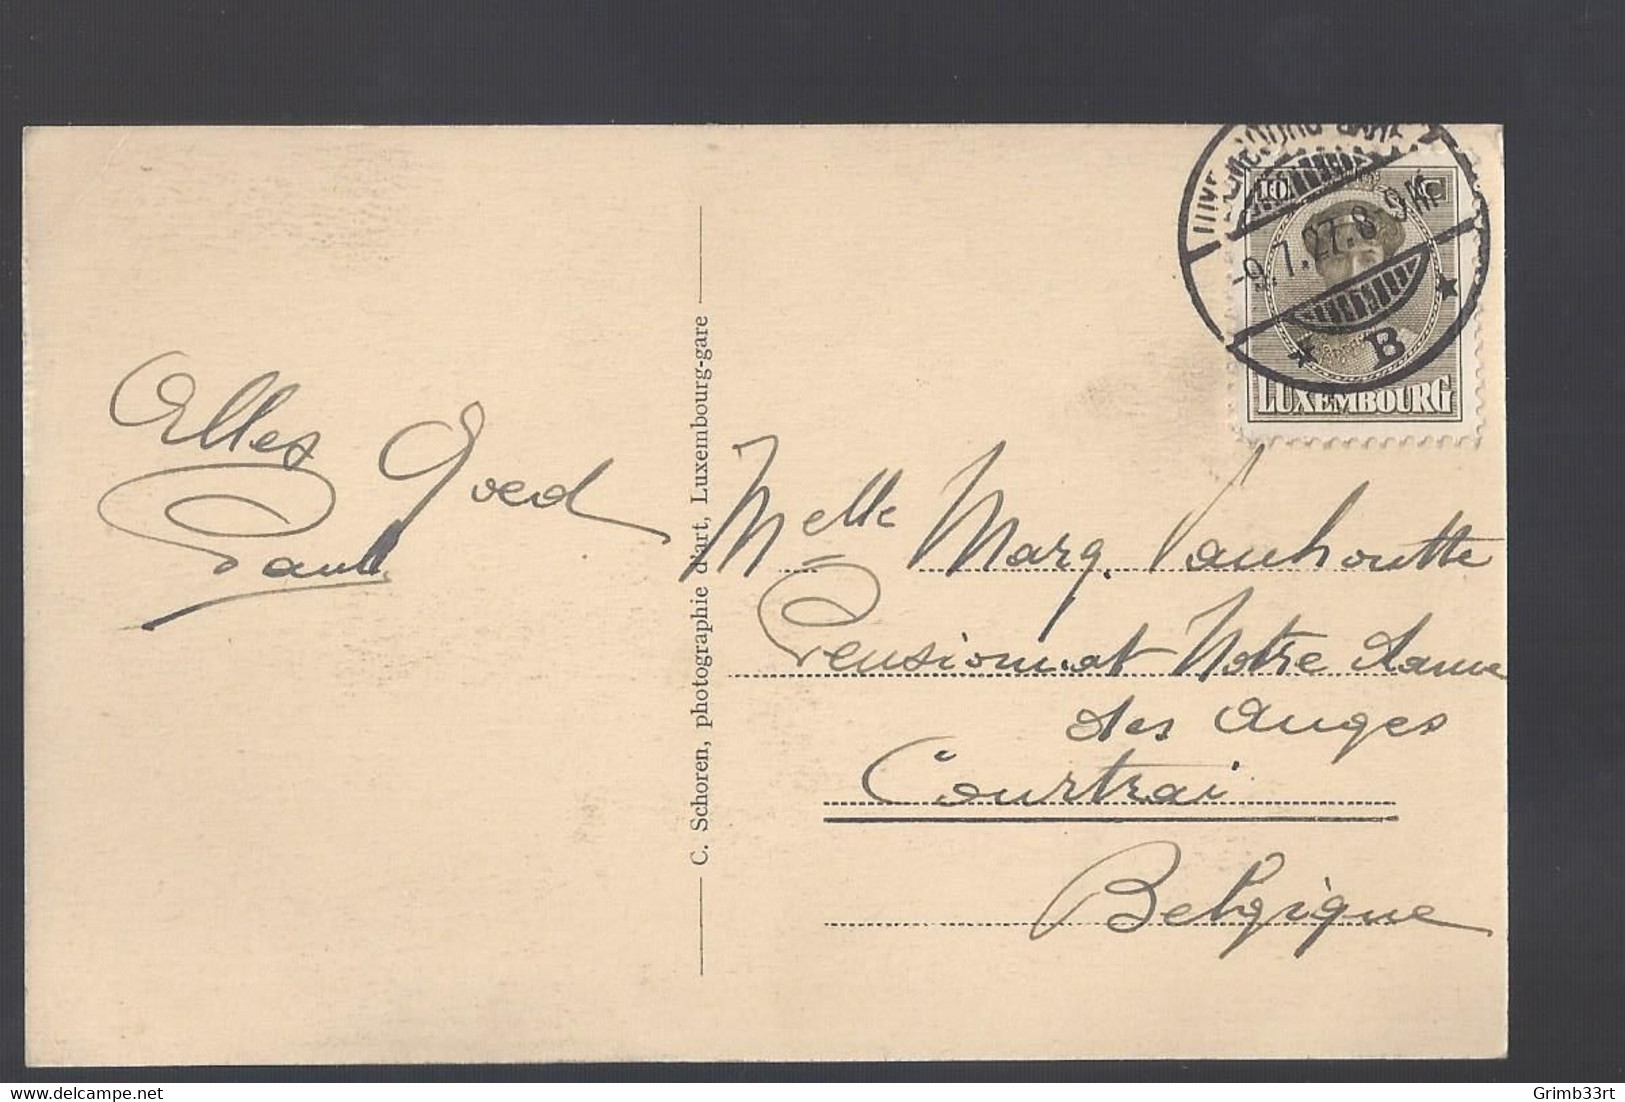 Alles Goed
Paul
C. Schoren, photographie d'art, Luxembourg-gare
10 C
LUXEMBOURG
-9.7.27.8-9
B
Melle Marg. Vanhoutte
Pensionnat Notre Dame
des Anges
Courtrai
Belgique
Grimb33rt